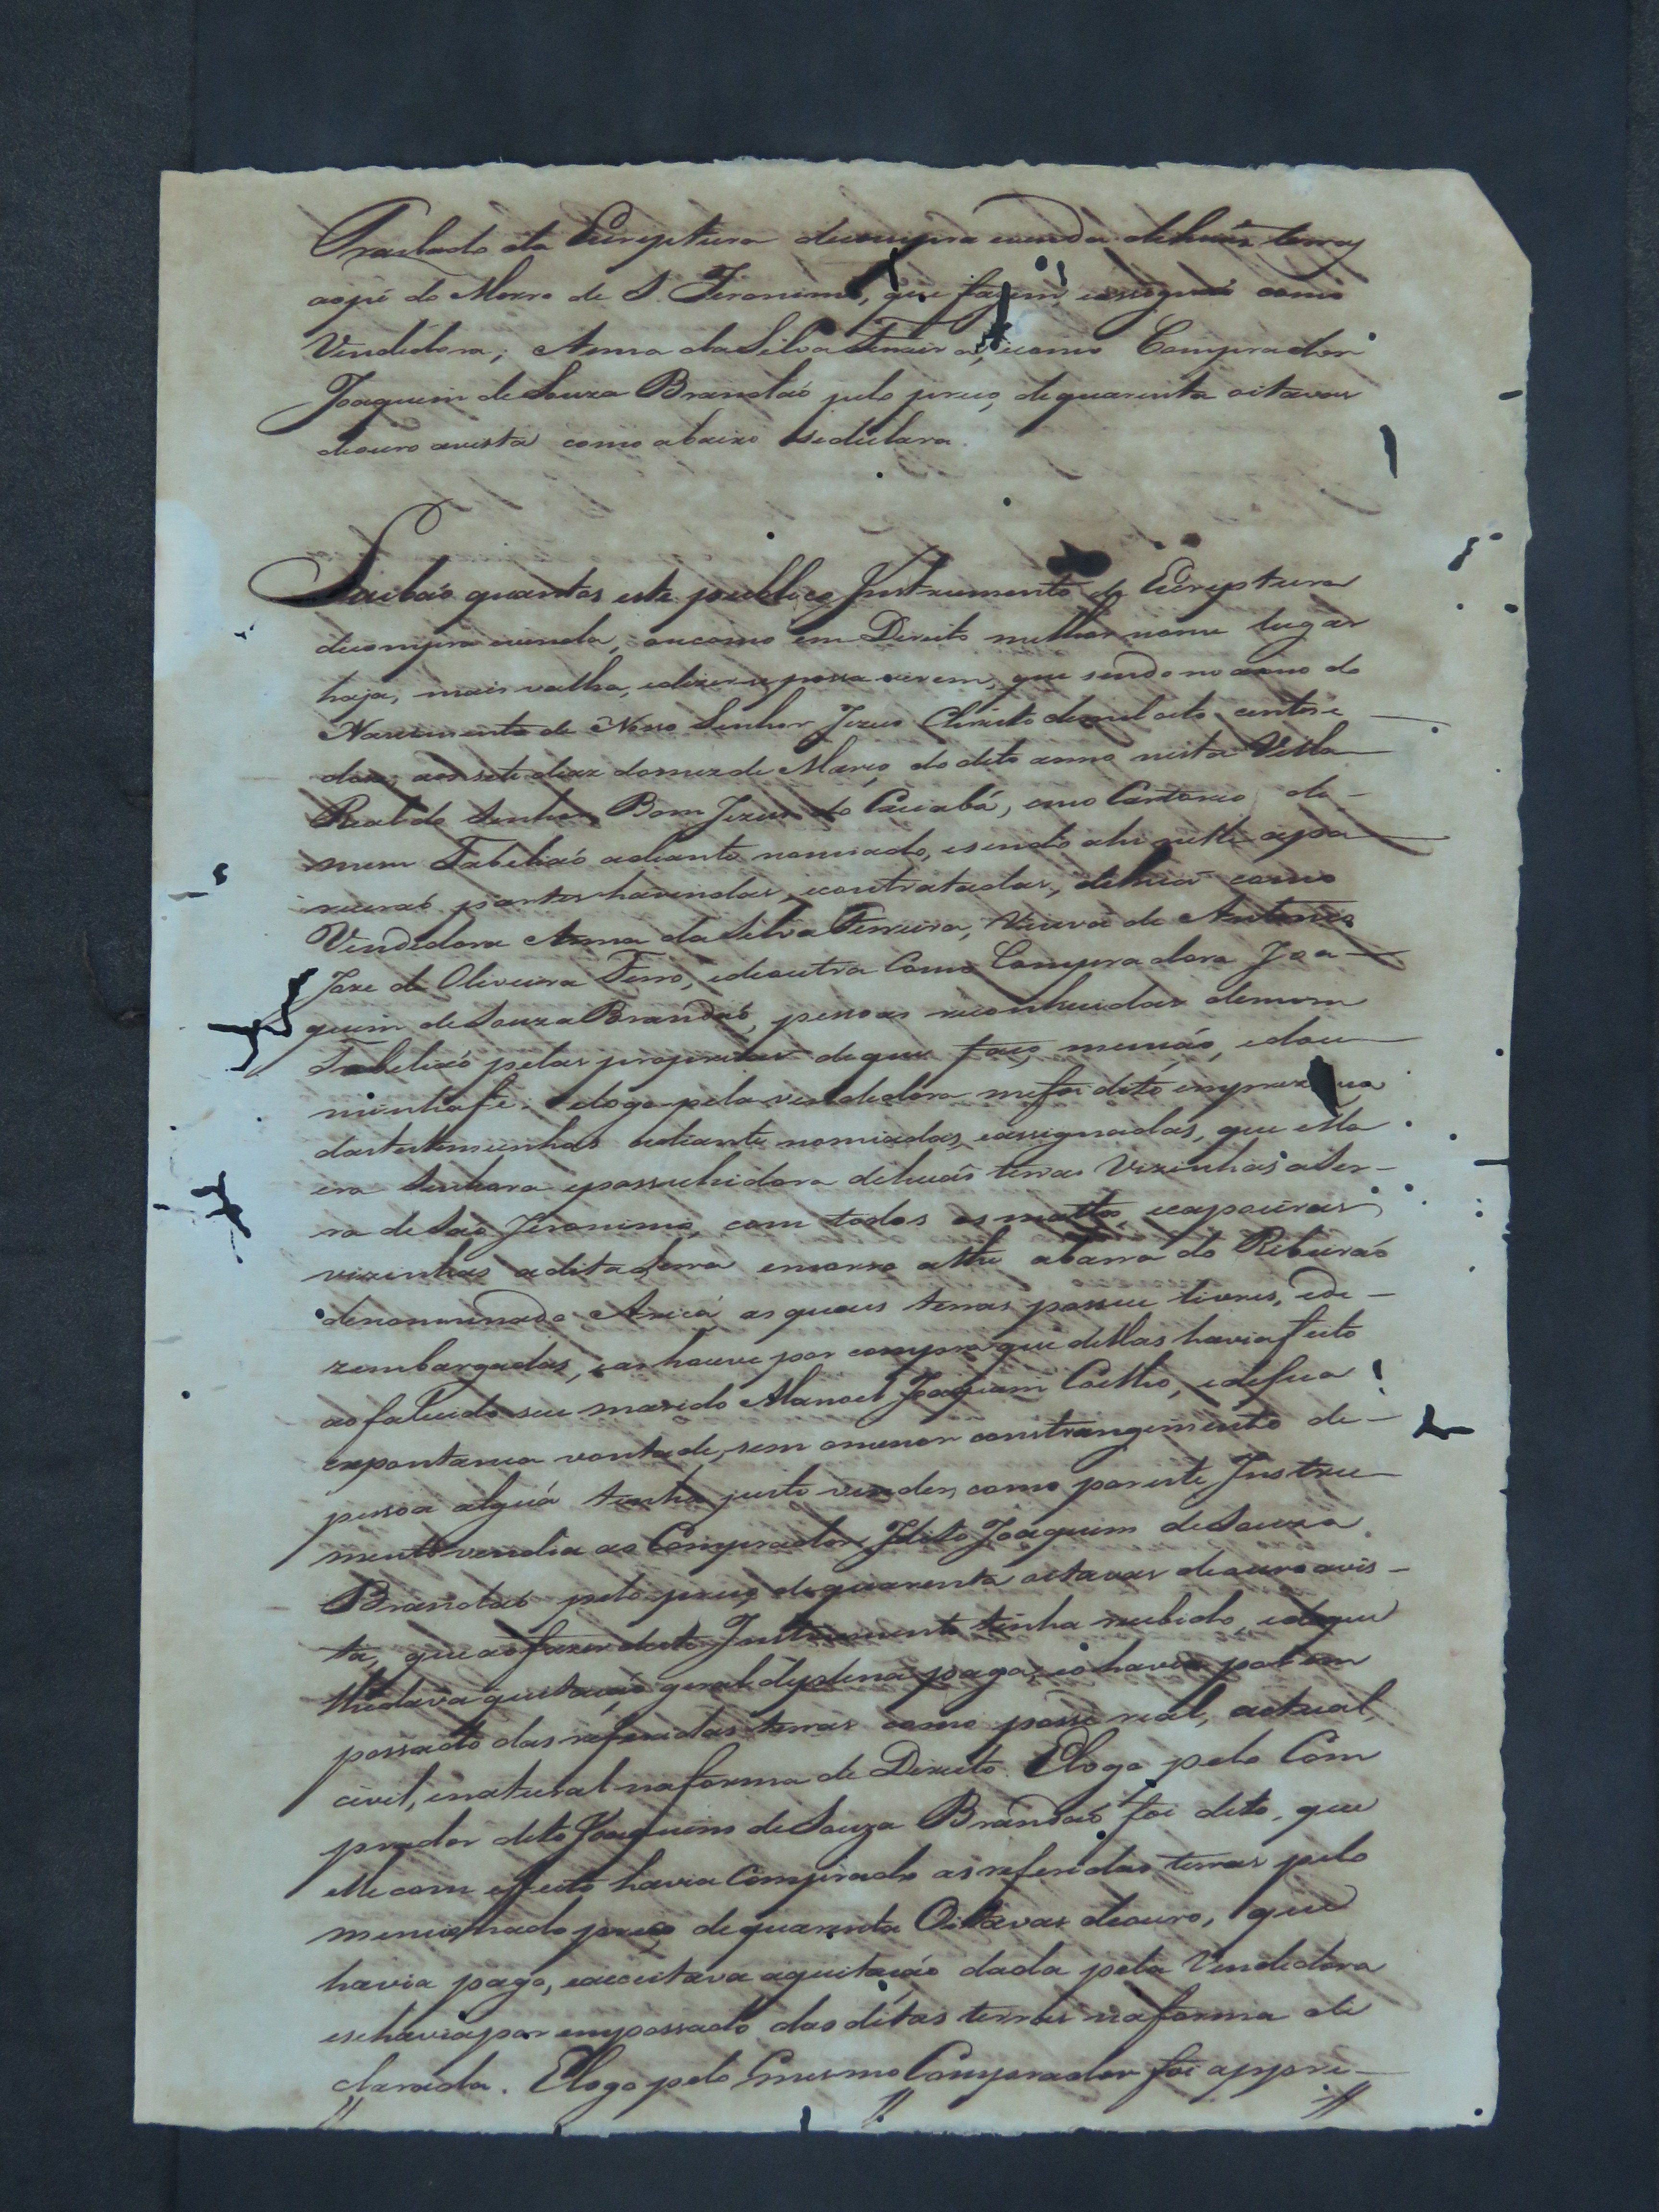 Traslado da Escreptura decompra evenda dehuãs terras
aopé do Morro de S. Jeronimo, que fazem, eassignaõ como
Vendedora, Anna daSilva Ferreira, ecomo Comprador
Joaquim deSouza Brandaõ pelo preço, dequarenta oitavas
deouro avista como abaixo sedeclara.
Saibaõ quantos este publico Instrumento de Escreptura
decompra evenda, oucomo em Direito milhor nome lugar
haja, mais valha, edizerse possa virem, que sendo no anno do
Nascimento de Nosso Senhor Jezus Christo demil oito centos e
doze, aos sete dias domez de Março do dito anno nesta Villa
Real do Senhor Bom Jezus do Cuiabá, emo Cartorio de
mim Tabeliaõ adiante nomiado, esendo ahi nelle apa
receraõ partes havendas, econtratadas, dehuã como
Vendedora Anna da Silva Ferreira, Viuva de Antonio
Joze de Oliveira Ferro, edeoutra Como Compradora Joa
quim deSouza Brandaõ, pessoas reconhecidas demim
Tabeliaõ pelas proprias deque faço mençaõ, edou
minhafé. elogo pela vendedora mefoi dito emprezença
dastestemunhas adiante nomiadas, eassignadas, que ella
era Senhora epossuhidora dehuãs terras Vizinhas aSer-
ra deSaõ Jeronimo, com todos os mattos, ecapoeiras
vizinhas aditaSerra emorro athe abarra do Ribeiraõ
denominado Aricá as quaes terras possue livres, ede-
zembargadas, eashouve por compra que dellas haviafeito
aofalecido seu marido Manoel Joaquim Coelho, edesua
expontanea vontade, sem omenor constrangimento de-
pessoa alguã tinha justo vender, como poreste Instru-
mento vendia ao Comprador Jdito Joaquim deSouza
Brandaõ pelo preço dequarenta oitavas deouro avis-
ta, que aofazer deste Instrumento tinha recebido, edeque
lhedava quitaçaõ geral deplena paga, eohavia por em
possado das referidas terras como posse real, actual,
civil, enatural naforma de Direito. Elogo pelo Com
prador dito Joaquim deSouza Brandaõ foi dito, que
elle com effeito havia Comprado asreferidas terras pelo
mencionado preço dequarenta Oitavas deouro, que
havia pago, eacceitava aquitaçaõ dada pela Vendedora
esehaviapor empossado das ditas terras naforma de
clarada. Elogo pelo mesmo Comprador foi appre-